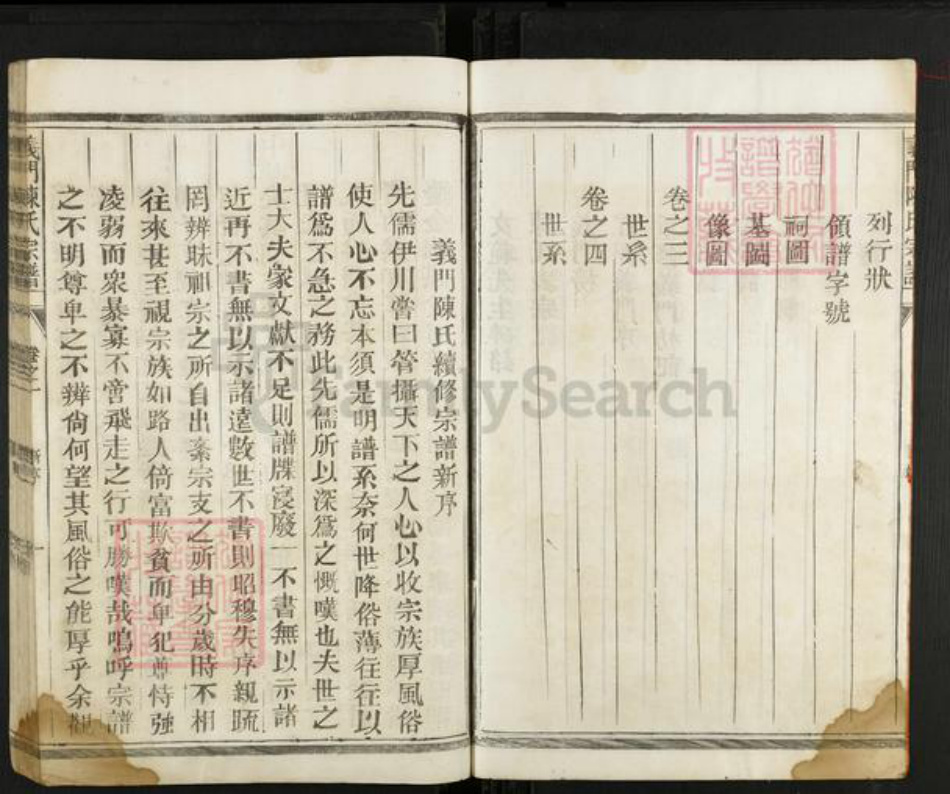 列行狀
領譜字號
祠圖
墓圖
像圖
卷之三
世系
卷之四
世系
義門陳氏續修宗譜新序
先儒伊川嘗曰管攝天下之人心以收宗族厚風俗
使人心不忘本須是明譜系奈何世降俗薄往往以
譜爲不急之務此先儒所以深爲之慨嘆也夫世之
士大夫家文獻不足則譜牒寖廢一不書無以示諸
近再不書無以示諸遠數世不書則昭穆失序親疏
罔辨昧祖宗之所自出紊宗支之所由分歲時不相
往來甚至視宗族如路人倚富欺貧而卑犯尊恃強
凌弱而衆暴寡不啻飛走之行可勝嘆哉嗚呼宗譜
之不明尊卑之不辨尙何望其風俗之能厚乎余觀
義門陳氏宗譜
FamilySearch